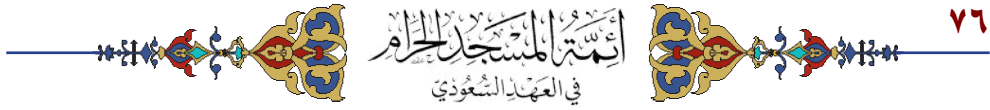 ٧٦
أَئِمَّةُ المَسْجِدِ الحَرَامِ
فِي العَهْدِ السُّعُودِيّ